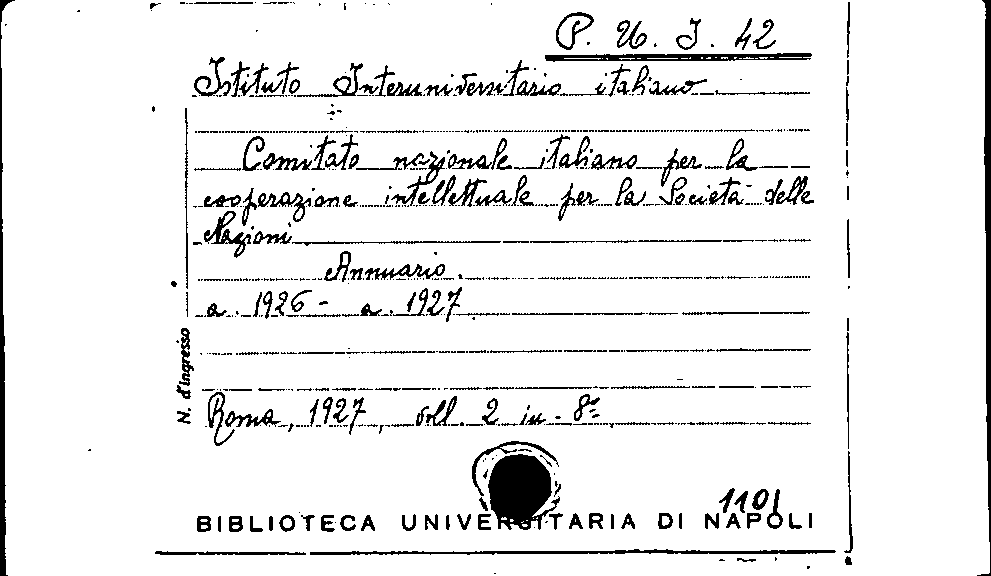 P. U. I. 42
Istituto Interuniversitario italiano.
Comitato nazionale italiano per la
cooperazione intellettuale per la Società delle
Nazioni.
Annuario.
a. 1926 - a. 1927
N. d'ingresso
Roma, 1927, voll. 2 in-8°
1101
BIBLIOTECA UNIVERSITARIA DI NAPOLI